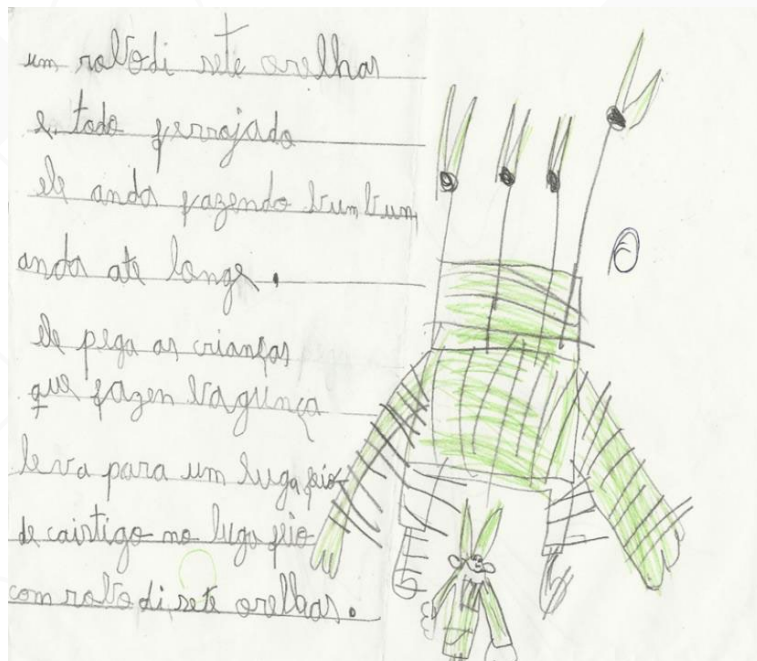 um robo di sete orelhas
e todo ferrojado
ele anda fazendo bumbum
anda ate longe.
ele pega as crianças
que fazen bagunça
leva para um luga feio
de castigo no luga feio
com robo di sete orelhas.